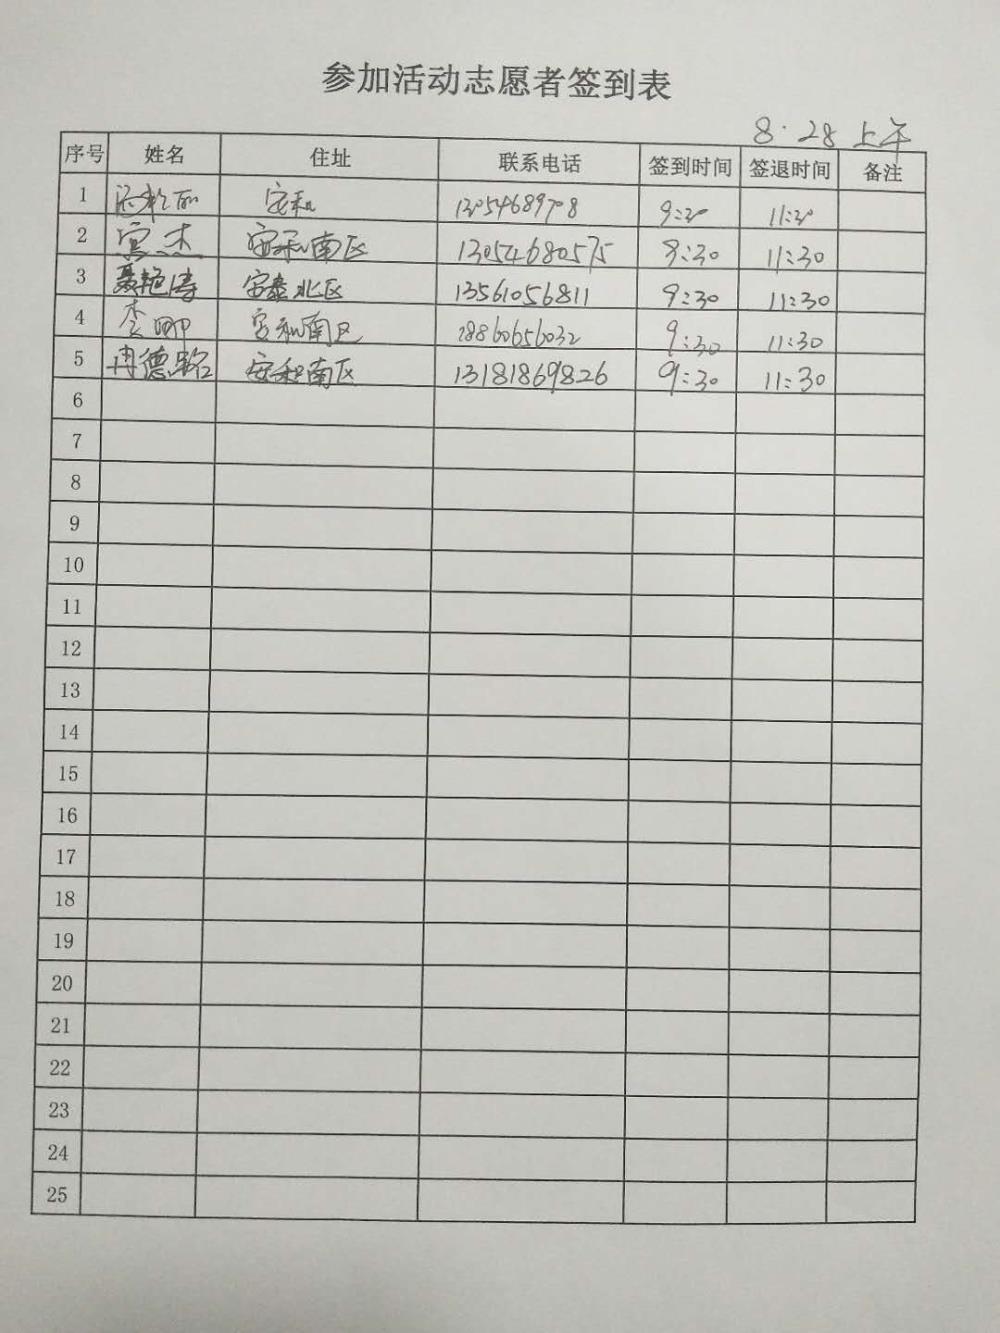 参加活动志愿者签到表
8.28 上午
序号 姓名 住址 联系电话 签到时间 签退时间 备注
1 安和 13054689708 9:30 11:30
2 宫杰 安和南区 13054680575 9:30 11:30
3 聂艳涛 安泰北区 13561056811 9:30 11:30
4 李娜 安和南区 18860656032 9:30 11:30
5 冉德路 安和南区 13181869826 9:30 11:30
6
7
8
9
10
11
12
13
14
15
16
17
18
19
20
21
22
23
24
25